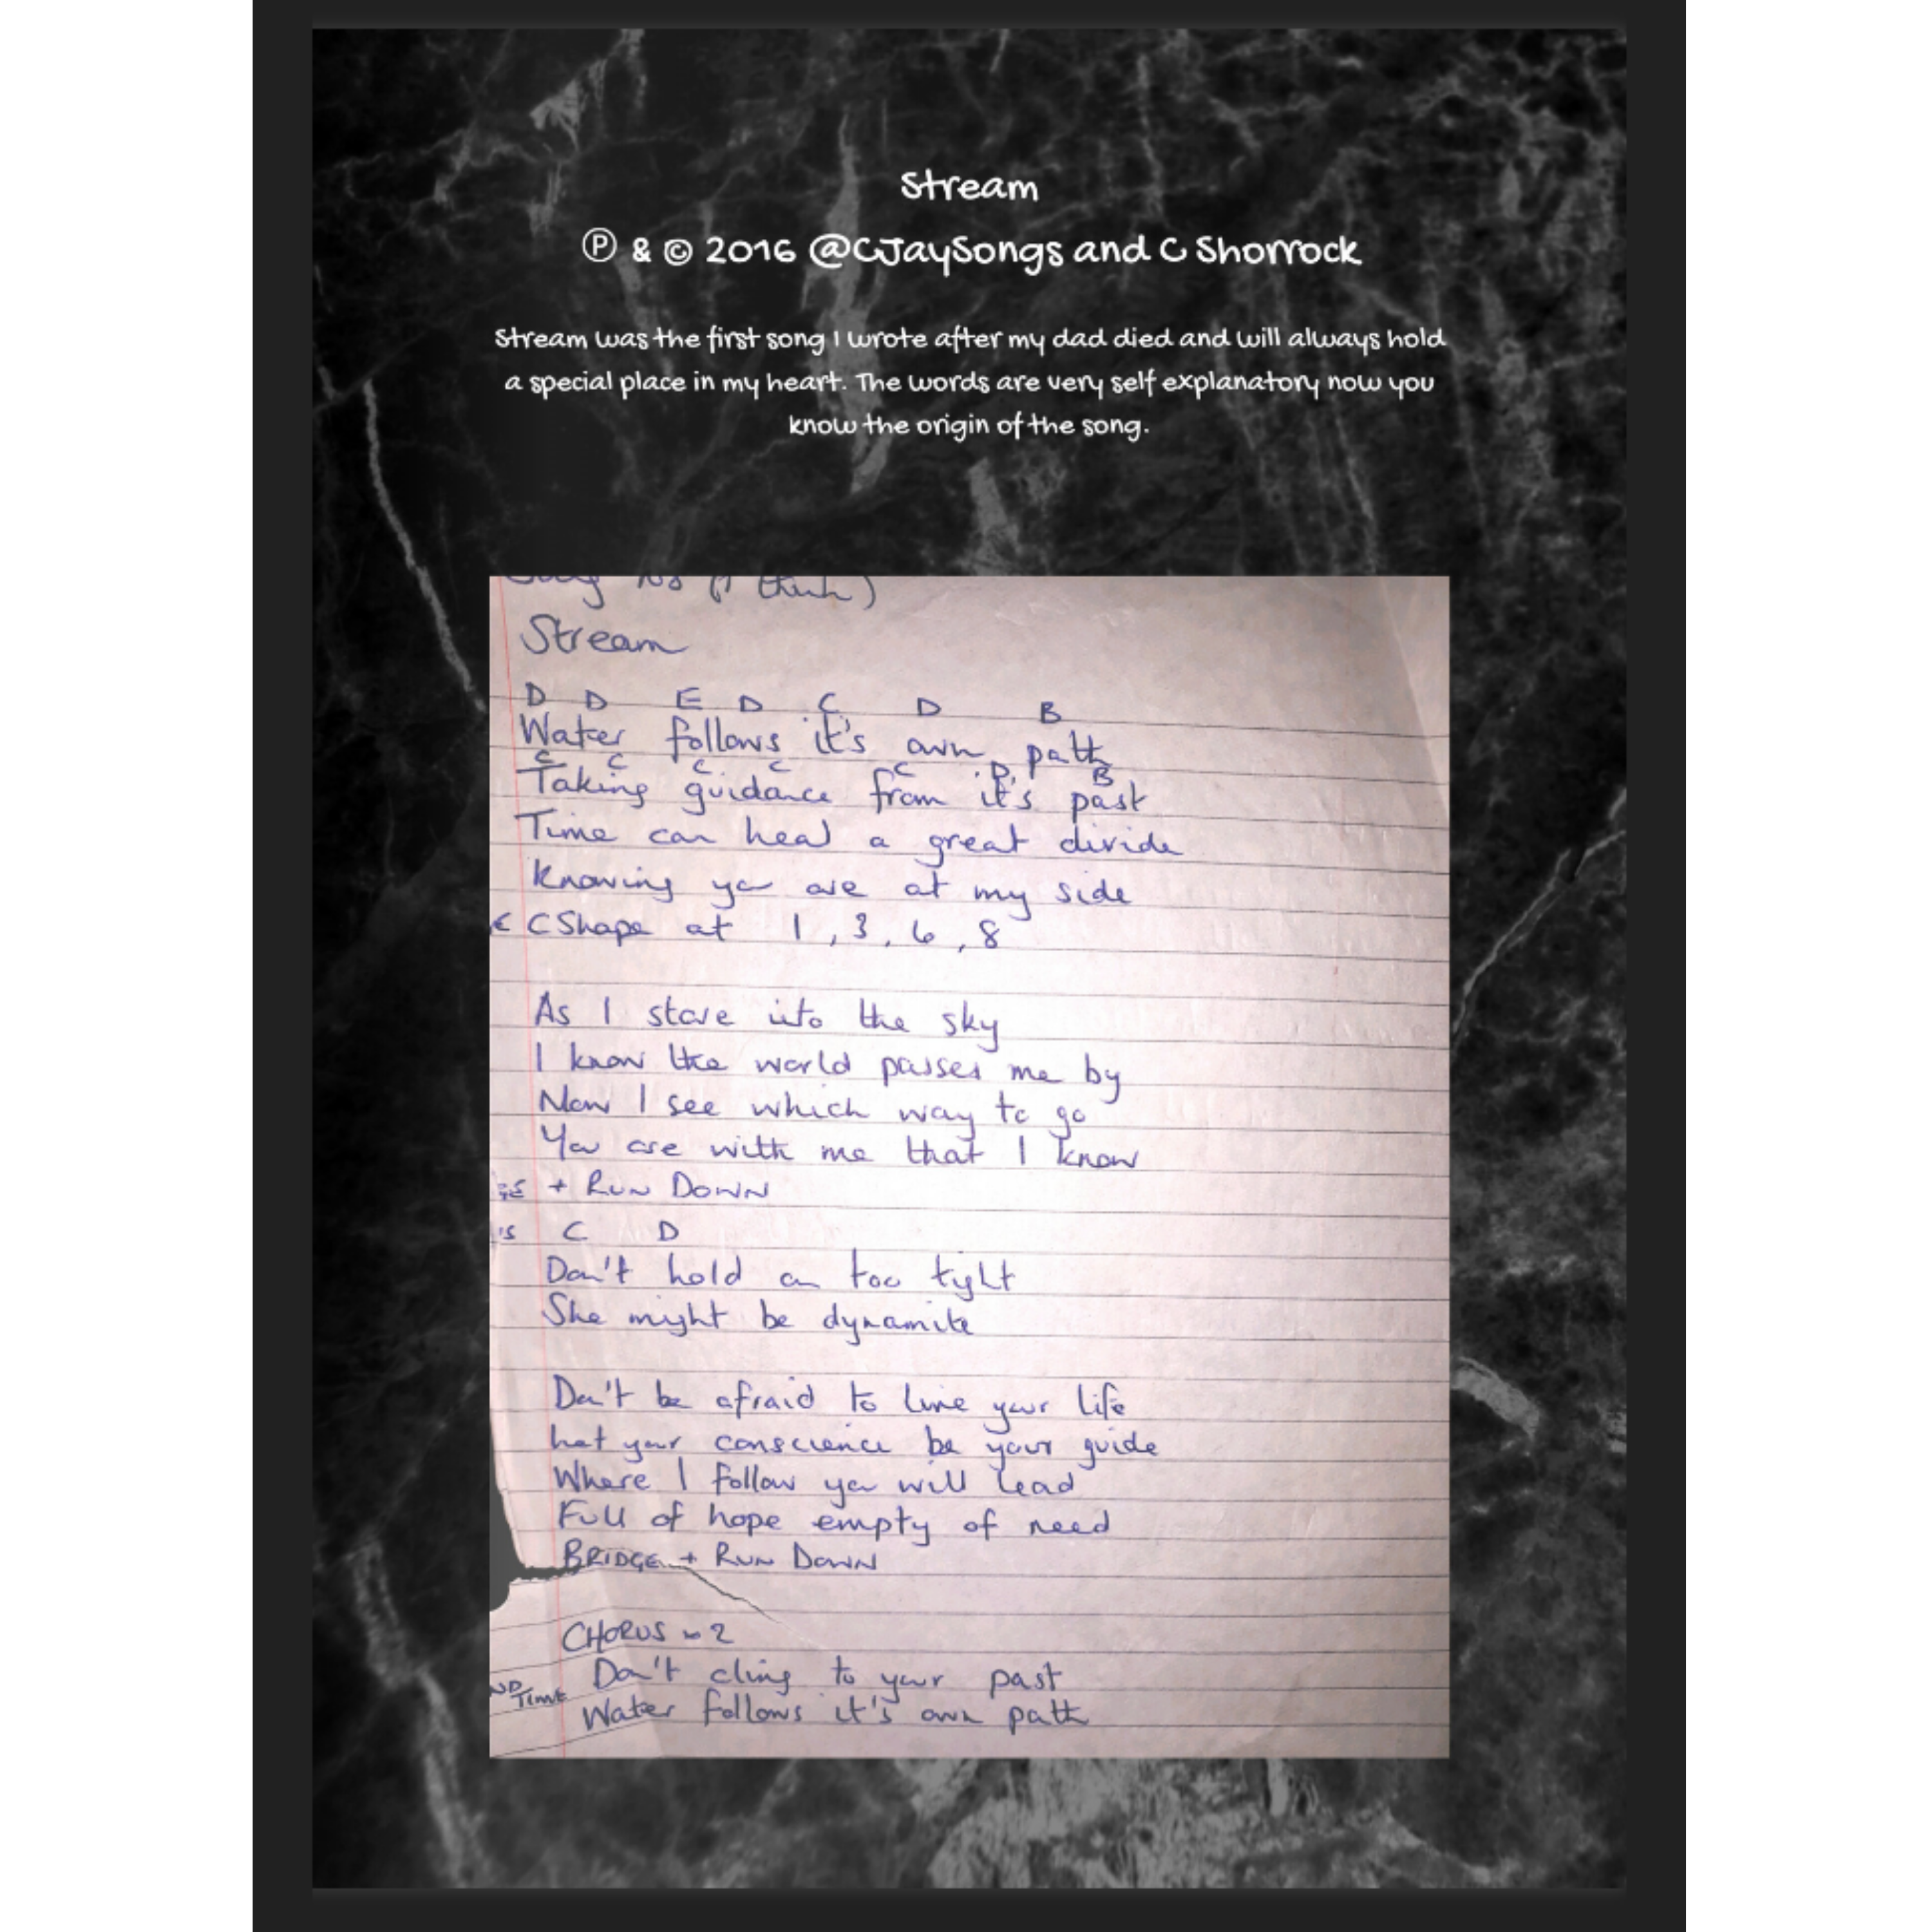 Stream
℗ & © 2016 @CJaySongs and C Shorrock
Stream was the first song I wrote after my dad died and will always hold
a special place in my heart. The words are very self explanatory now you
know the origin of the song.
(I think)
Stream
D D E D C D B
Water follows it's own path
C C C C C D B
Taking guidance from it's past
Time can heal a great divide
Knowing you are at my side
C Shape at 1, 3, 6, 8
As I stare into the sky
I know the world passes me by
Now I see which way to go
You are with me that I know
+ RUN DOWN
C D
Don't hold on too tight
She might be dynamite
Don't be afraid to live your life
Let your conscience be your guide
Where I follow you will lead
Full of hope empty of need
BRIDGE + RUN DOWN
CHORUS x 2
Don't cling to your past
ND TIME
Water follows it's own path